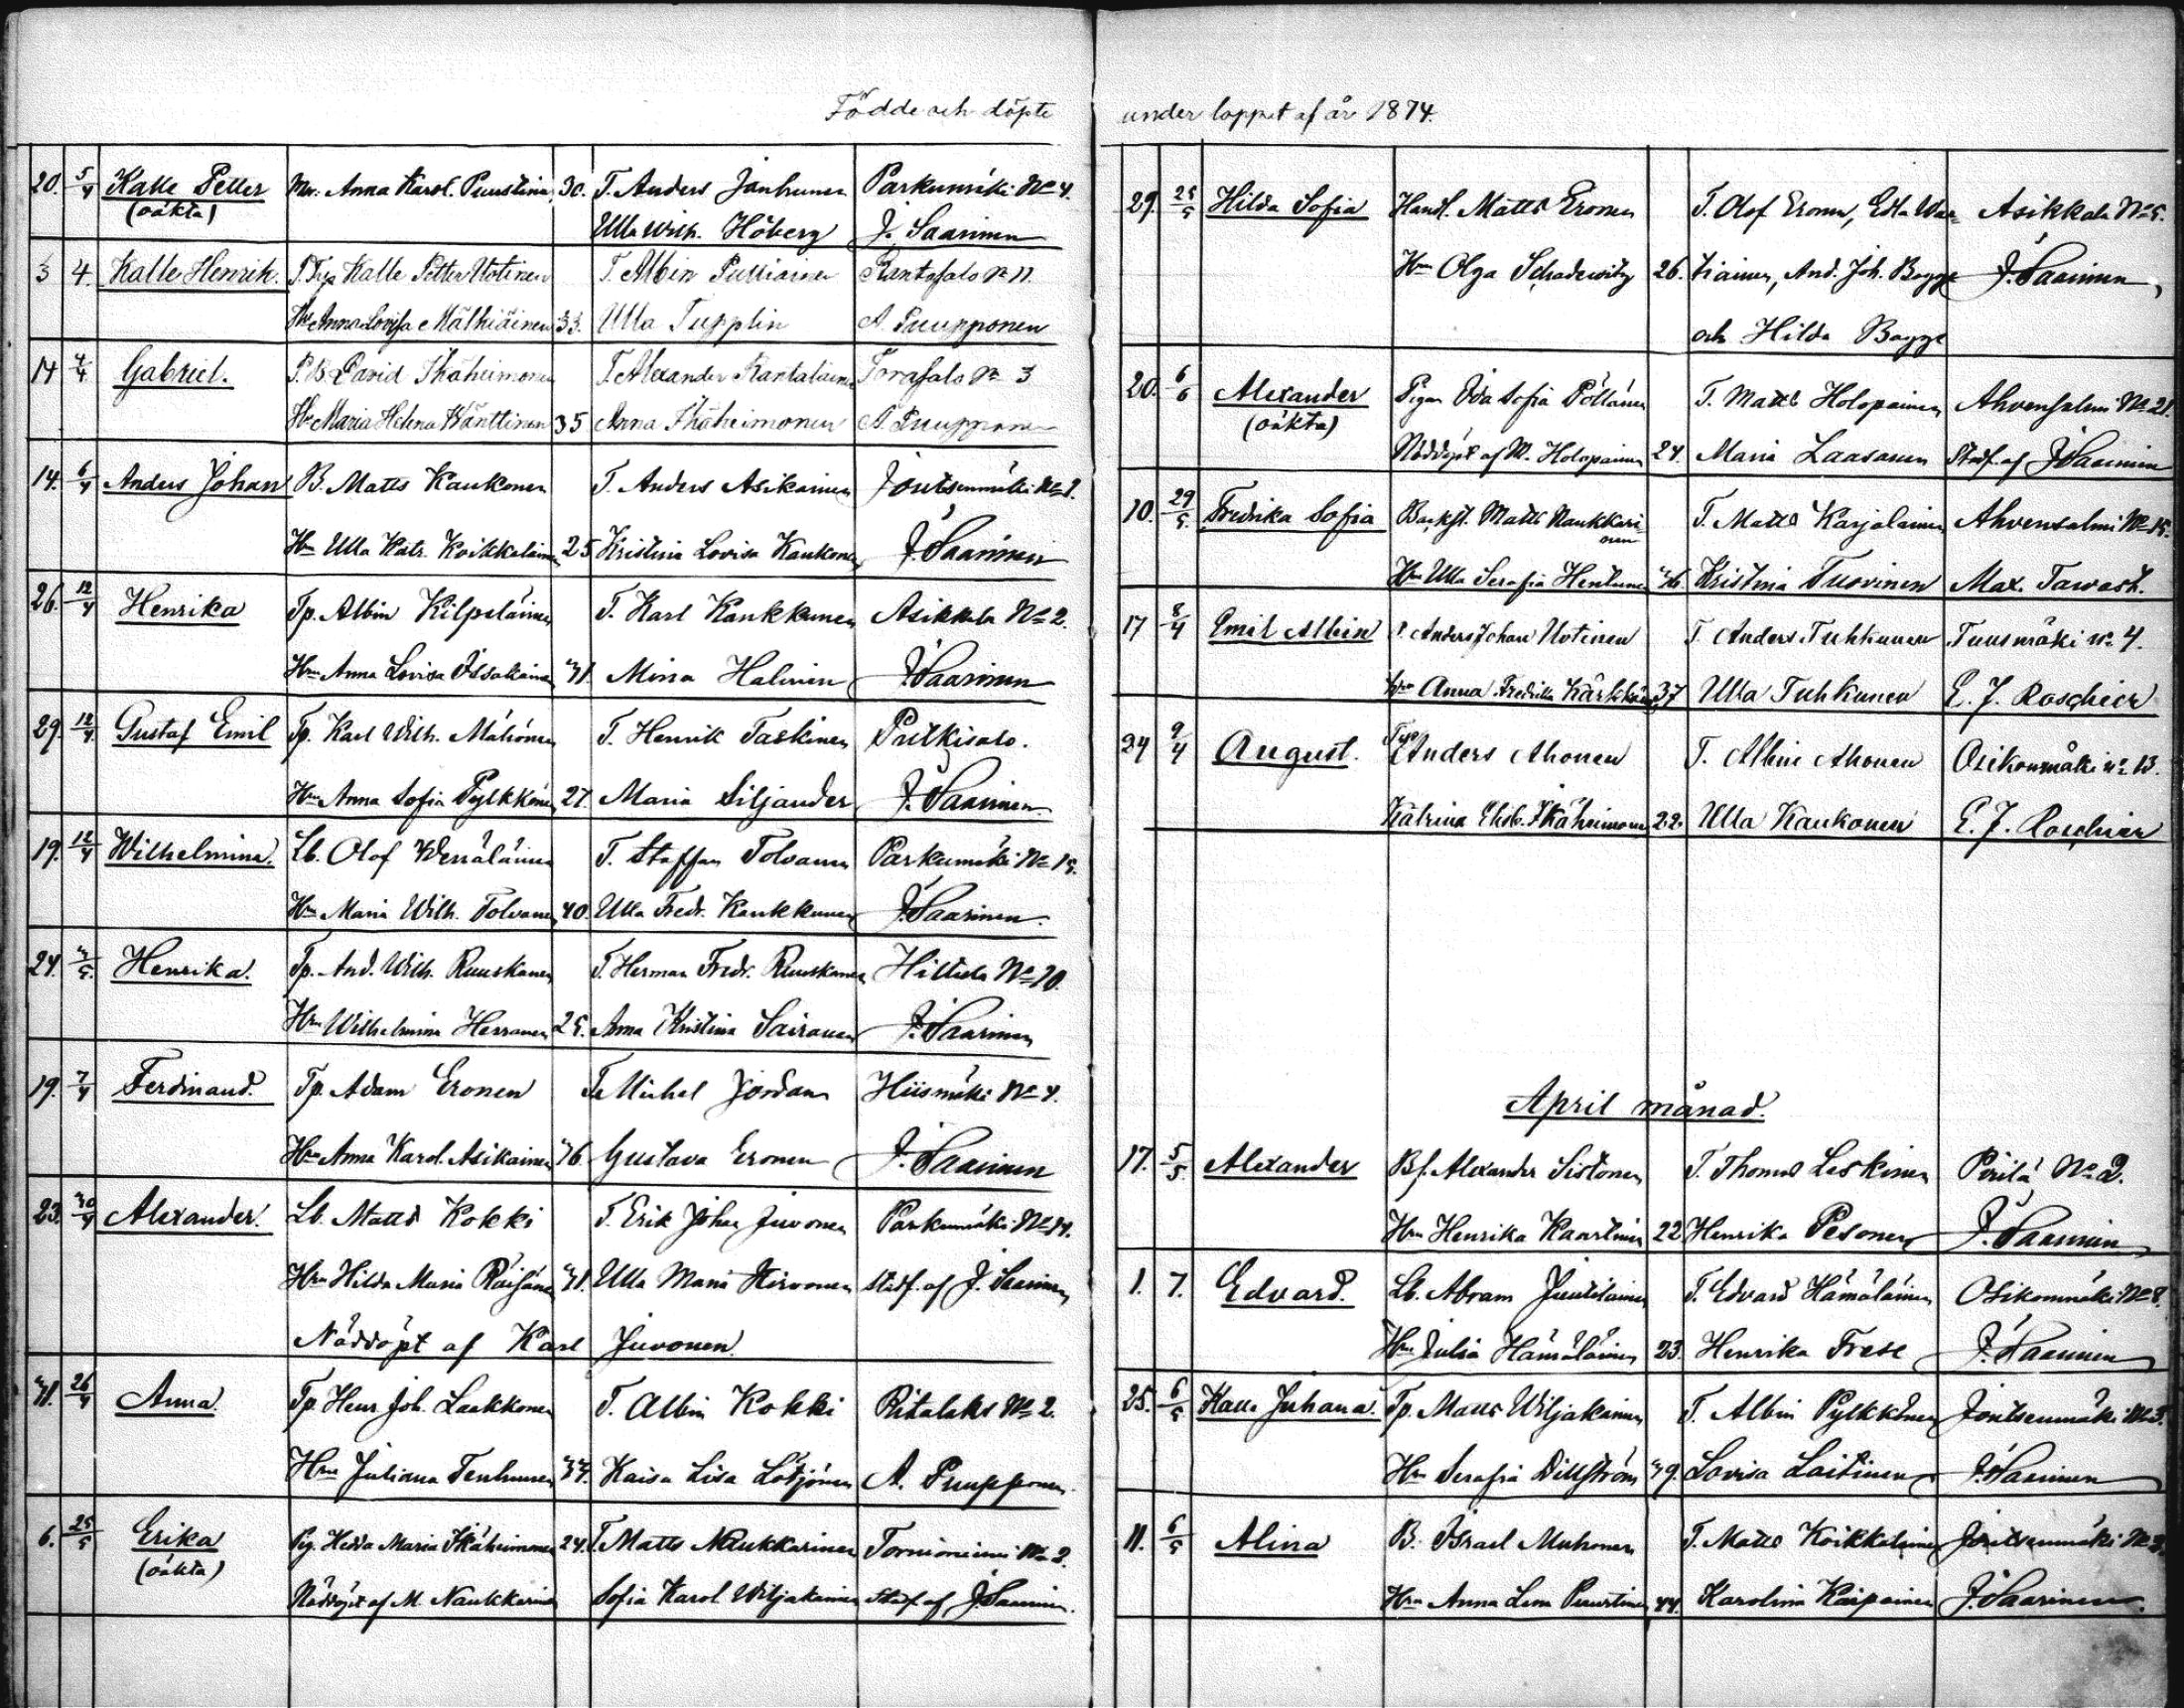 Födde och döpte under loppet af år 1874.
20. 5/4 Kalle Petter Mn: Anna Karol. Puustinen 30. T. Anders Janhunen Parkumäki No 4.
(oäkta) Ulla Wilh. Höberg J. Saarinen
3 4. Kalle Henrik. Kalle Petter Uotinen T. Albin Rantasalo No 11.
Hu Anna Lovisa 33. Ulla Tupplin A. Puupponen
14 4/4 Gabriel. David Ikäheimonen T. Alexander Rantalainen Torasalo No 3
Hu Maria Helena Wänttinen 35 Anna Ikäheimonen A. Puupponen
14. 6/4 Anders Johan B. Matts Kaukonen T. Anders Asikainen Joutsenmäki No 1.
Hu Ulla Katr. Koikkalainen 25 Kristina Lovisa Kaukonen J. Saarinen
26. 12/4 Henrika Tp. Albin Kilpeläinen T. Karl Kaukkunen Asikkala No 2.
Hu Anna Lovisa Issakainen 31. Mina Halinin J. Saarinen
29. 12/4 Gustaf Emil Tp. Karl Wilh. Mähönen T. Henrik Taskinen Partkisalo.
Hu Anna Sofia Pylkkönen 27. Maria Siljander J. Saarinen
19. 12/4 Wilhelmina. Lb. Olof Wenäläinen T. Staffan Tolvanen Parkumäki No 15.
Hu Maria Wilh. Tolvanen 40. Ulla Fredr. Kaukkunen J. Saarinen.
24. Henrika. Tp. And. Wilh. Ruuskanen T. Herman Fredr. Ruuskanen Hiltula No 10.
Hu Wilhelmina Herranen 25. Anna Kristina Sairanen J. Saarinen
19. 7/4 Ferdinand. Tp. Adam Eronen T. Michel Jordan Hiismäki No 4.
Hu Anna Karol. Asikainen 36. Gustava Eronen J. Saarinen
23. 30/4 Alexander. Lb. Matts Kokki T. Erik Johan Juvonen Parkumäki No 14.
Hu Hilda Maria Räisänen 31. Ulla Maria Hirvonen stadf. af J. Saarinen
Nöddöpt af Karl Juvonen.
31. 26/4 Anna. Tp. Henr. Joh. Laakkonen T. Albin Kokki Ritalaks No 2.
Hu Juliana Tenhunen 34. Kaisa Lisa Lötjönen A. Puupponen.
6. 25/5 Erika Pig. Hedda Maria Ikäheimonen 24. T. Matts Naukkarinen Tornioniemi No 2.
(oäkta) Nöddöpt af M. Naukkarinen Sofia Karol. Wiljakainen stadf. af J. Saarinen.
29. 25/5 Hilda Sofia Handl. Matts Eronen T. Olof Eronen, Edla War- Asikkala No 5.
Hu Olga Schadewitz 26. tiainen, And. Joh. Bagge J. Saarinen
och Hilda Bagge
20. 6/6 Alexander Pigan Ida Sofia Pöllänen T. Matts Holopainen Ahvensalmi No 21.
(oäkta) Nöddöpt af M. Holopainen 24. Maria Laasanen Stadf. af J. Saarinen
10. 29/5 Fredrika Sofia Backst. Matts Naukkari- T. Matts Karjalainen Ahvensalmi No 15.
nen
Hu Ulla Serafia Hentunen 36. Kristina Tuovinen Max. Tawast.
17 8/4 Emil Albin Anders Johan Uotinen T. Anders Tuhkunen Tuusmäki No 4.
Hu Anna Fredrika Kärkkäinen 37 Ulla Tuhkunen E. J. Roschier
24 9/4 August. Tp Anders Ahonen T. Albin Ahonen Osikonmäki No 13.
Katrina Elisb. Ikäheimonen 22. Ulla Kaukonen E. J. Roschier
April månad.
17. 5/5 Alexander Bf. Alexander Sistonen T. Thomas Leskinen Pirilä No 2.
Hu Henrika Kaartinen 22 Henrika Pesonen J. Saarinen
1. 7. Edvard. Lb. Abram Juutilainen T. Edvard Hämäläinen Osikonmäki No 8.
Hu Julia Hämäläinen 23. Henrika Frese J. Saarinen
25. 6/5 Kalle Juhana. Tp. Matts Wiljakainen T. Albin Pylkkönen Joutsenmäki No 3.
Hu Serafia Dillström 39. Lovisa Laitinen J. Saarinen
11. 6/5 Alina B. Israel Muhonen T. Matts Koikkalainen Joutsenmäki No 3.
Hu Anna Lena Puustinen 44. Karolina Kaipainen J. Saarinen.